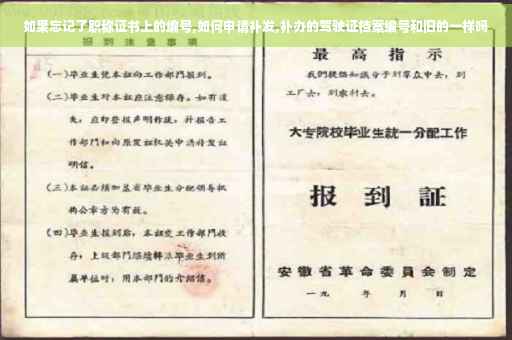 如果忘记了职称证书上的编号,如何申请补发,补办的驾驶证档案编号和旧的一样吗
报到注意事项
(一)毕业生凭本证向工作部门报到。
(二)毕业生对本证应注意保存。如有遗
失,应即登报声明作废,并报告工
作部门和向原发证机关申请补发证
明信。
(三)本证必须加盖省毕业生分配领导机
构公章方为有效。
(四)毕业生报到后,本证交工作部门收
存;上级部门继续转派毕业生到所
属单位时,用本部门的介绍信。
最高指示
我们提倡知识分子到羣众中去,到
工厂去,到农村去。
大专院校毕业生統一分配工作
报到証
安徽省革命委員会制定
一九 年 月 日